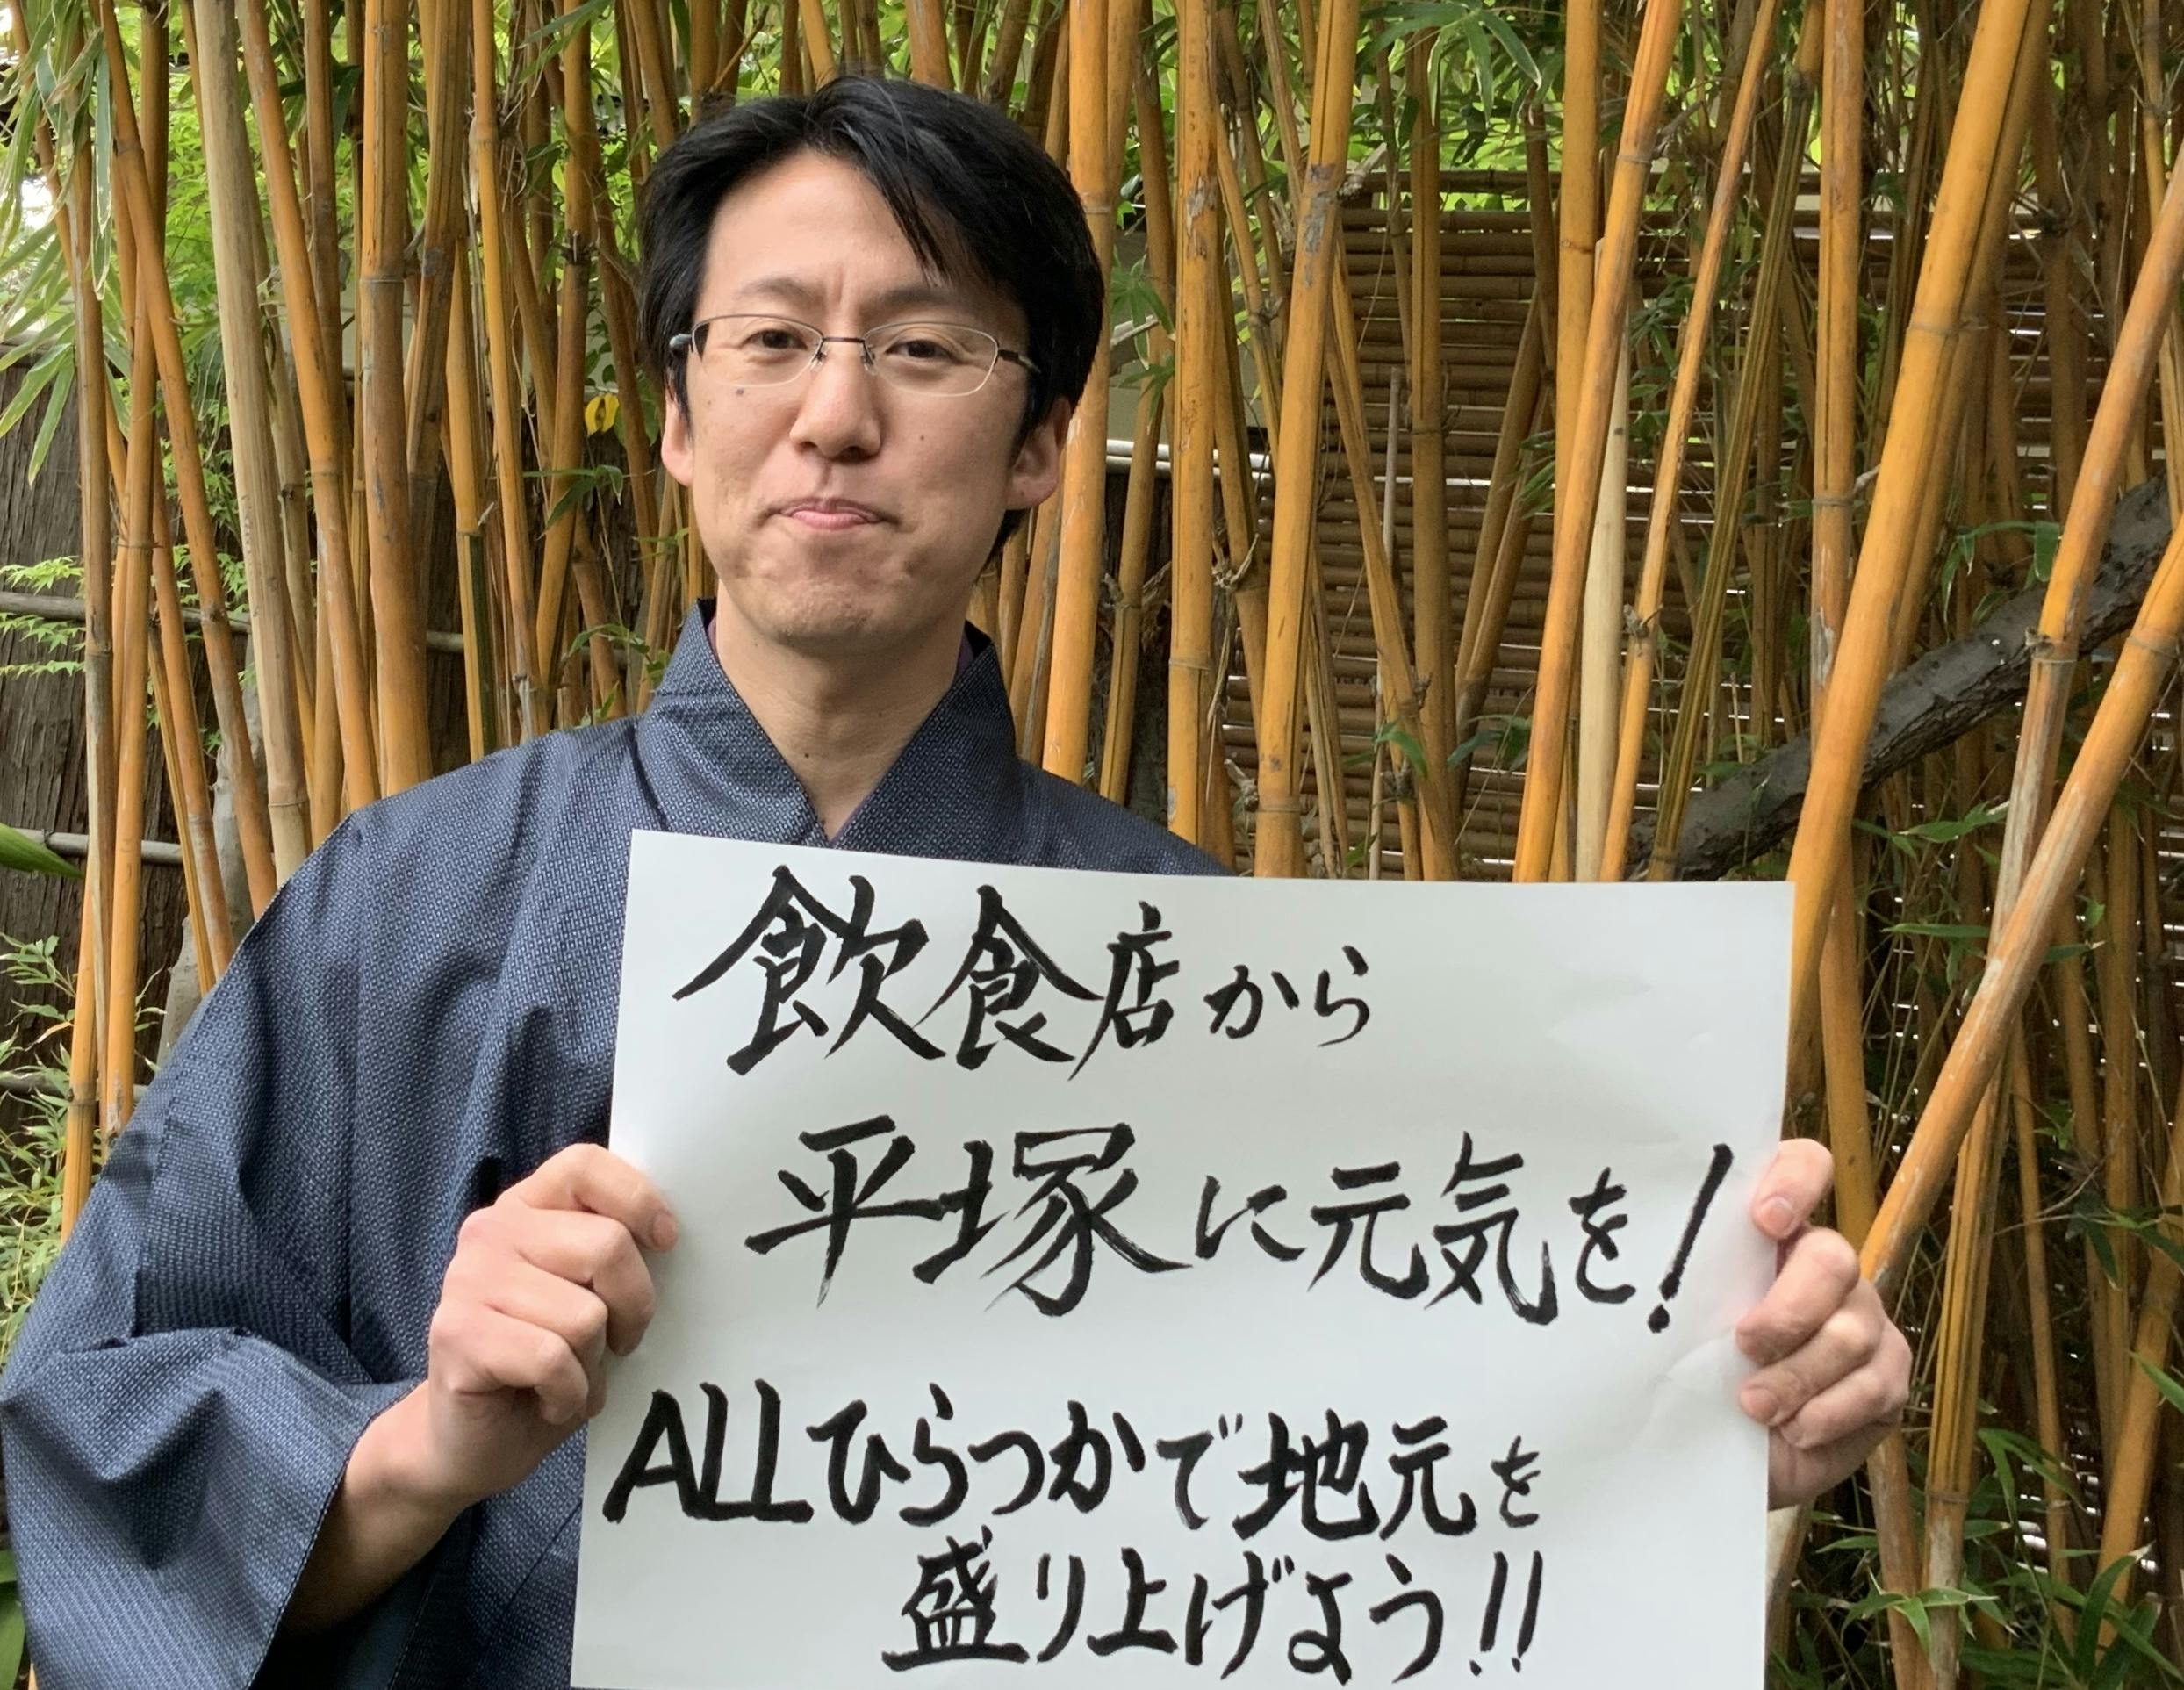 飲食店から
平塚に元気を!
ALLひらつかで地元を
盛り上げよう!!